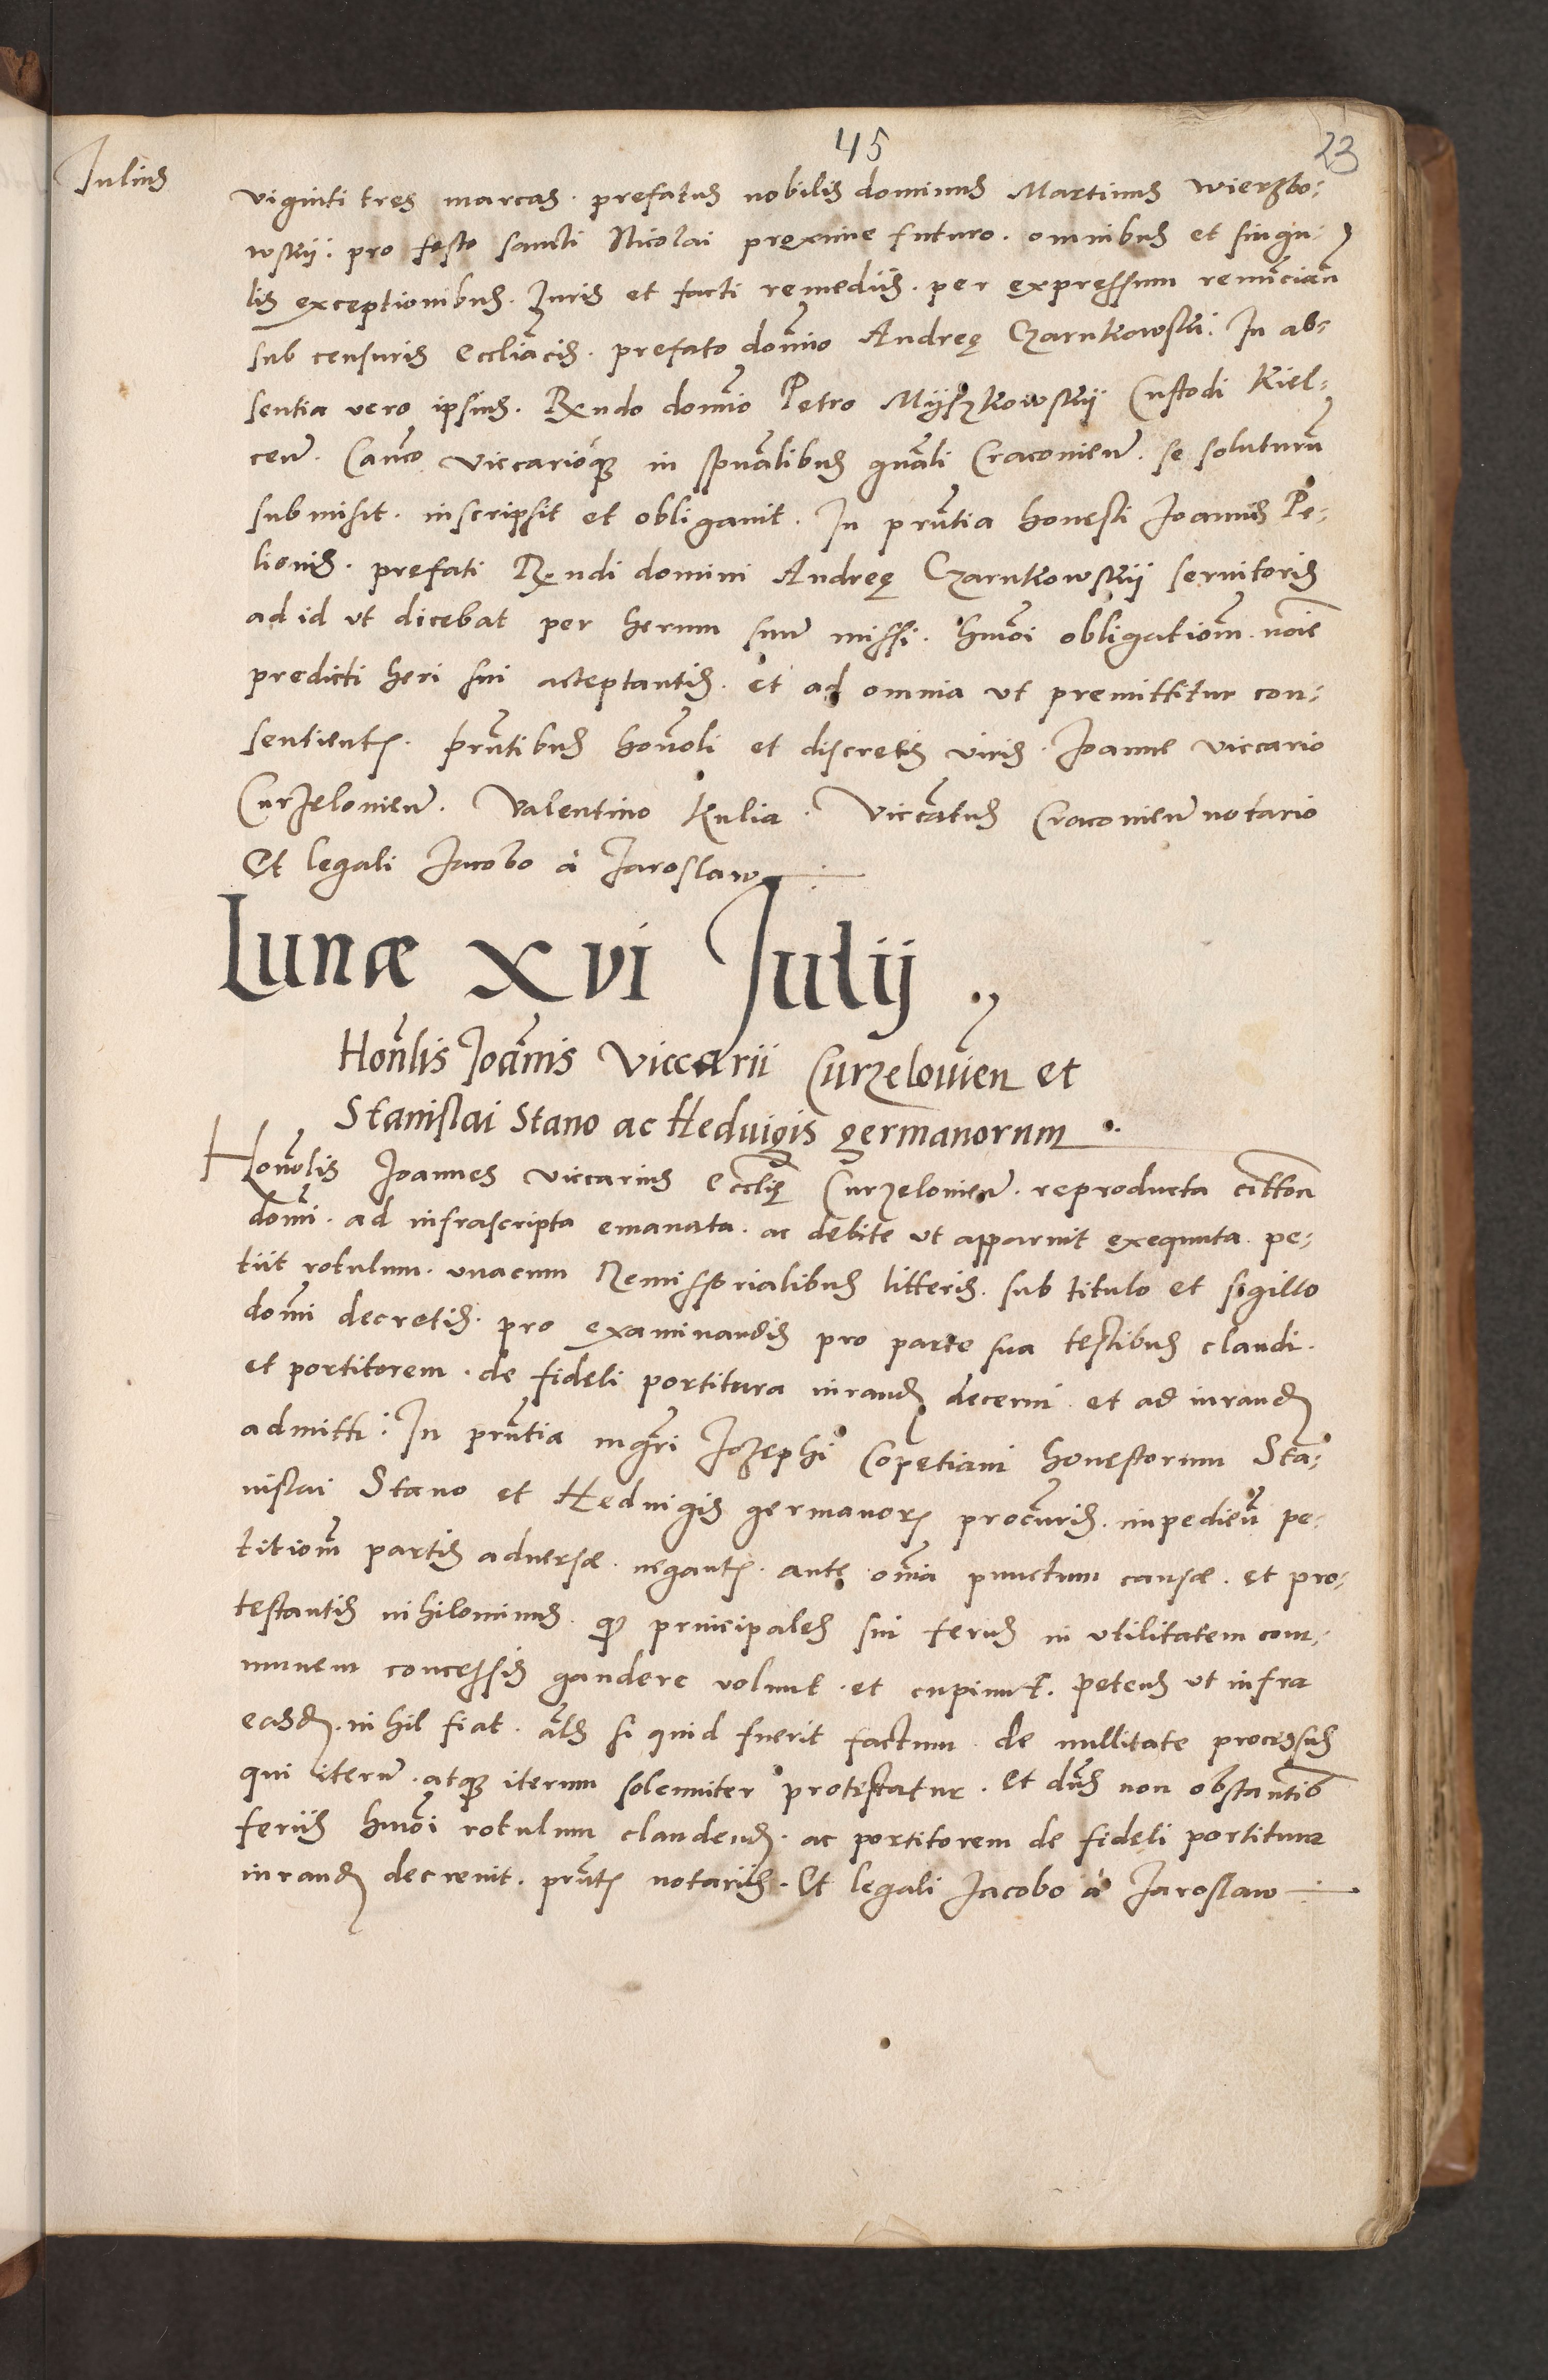 45
23
Iulius
viginti tres marcas. prefatus nobilis dominus Martinus Wierzbo-
wskij. pro festo sancti Nicolai proxime futuro. omnibus et singu-
lis exceptionibus. Iuris et facti remedijs. per expressum renūciañ
sub censuris eccliacis. prefato domño Andreę Czarnkowski. In ab-
sentia vero ipsius. Rndo domño Petro Myszkowskij Custodi Kiel-
ceñ. Cañco viccarioq̃ in spũalibus gñali Cracovieñ. se soluturũ
submisit. inscripsit et obligavit. In prñtia honesti Joannis Pe-
lionis. prefati Rndi domini Andreę Czarnkowskij servitoris
ad id vt dicebat per herum suũ missi. hmõi obligatioñm. noĩe
predicti heri sui acceptantis. et ad omnia vt premittitur con-
sentienť. prñtibus hoñoli et discretis viris. Joanne viccario
Curzelovieñ. Valentino Kulia. Viccãtus Cracovieñ notario
Et legali Jacobo à Jaroslaw
Lunæ XVI Julij
Hoñlis Joãnis Viccarii Curzelovieñ et
Stanislai Stano ac Hedvigis germanorum
Hoñolis Joannes viccarius ecclię Curzelovieñ. reproducta cittõn
domĩ. ad infrascripta emanata. ac debite vt apparuit exequuta. pe-
tiit rotulum. vnacum Remissorialibus litteris. sub titulo et sigillo
domĩ decretis. pro examinandis pro parte sua testibus claudi.
et portitorem. de fideli portitura iurand̃ decerni. et ad iurand̃
admitti. In prñtia mgr̃i Jozephi Copetiani honestorum Sta-
nislai Stano et Hedvigis germanoꝝ procũris. impedieñ pe-
titioñm partis adversæ. neganť. ante oĩa punctum causæ. et pro-
testantis nihilominus. q̃ principales sui ferijs in vtilitatem com-
munem concessis gaudere volunt. et cupiunt. petens vt infra
easd̃. nihil fiat. ał̃s si quid fuerit factum. de nullitate processus
qui iterũ. atq̃ iterum solenniter protestatur. Et dñs non obstantib
ferijs hmõi rotulum claudend̃. ac portitorem de fideli portitura
iurand̃ decrevit. prñť notarijs. Et legali Jacobo à Jaroslaw